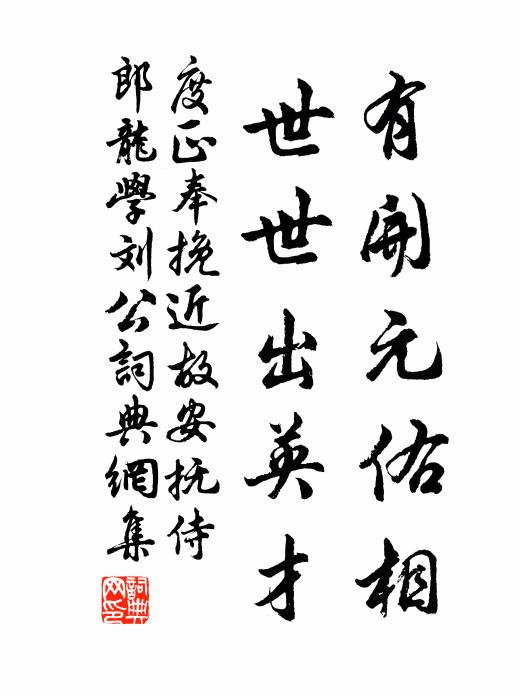 有開元佑相
世世出英才
度正奉挽近故安抚侍
郎龍學刘公詞典網集
詞典网印